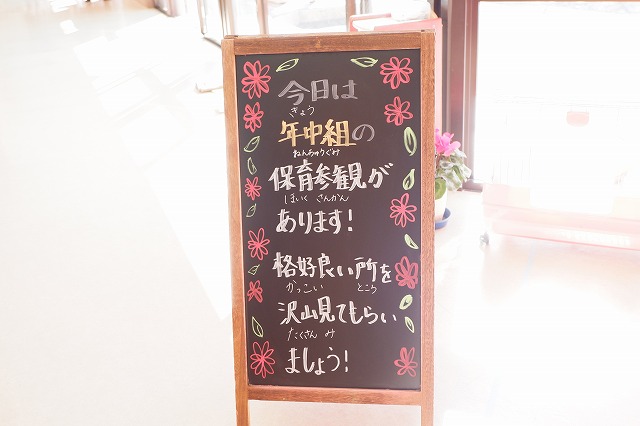 今日は
きょう
年中組の
ねんちゅうぐみ
保育参観が
ほいく さんかん
あります!
格好良い所を
かっこい ところ
沢山見てもらい
たくさん み
ましょう!